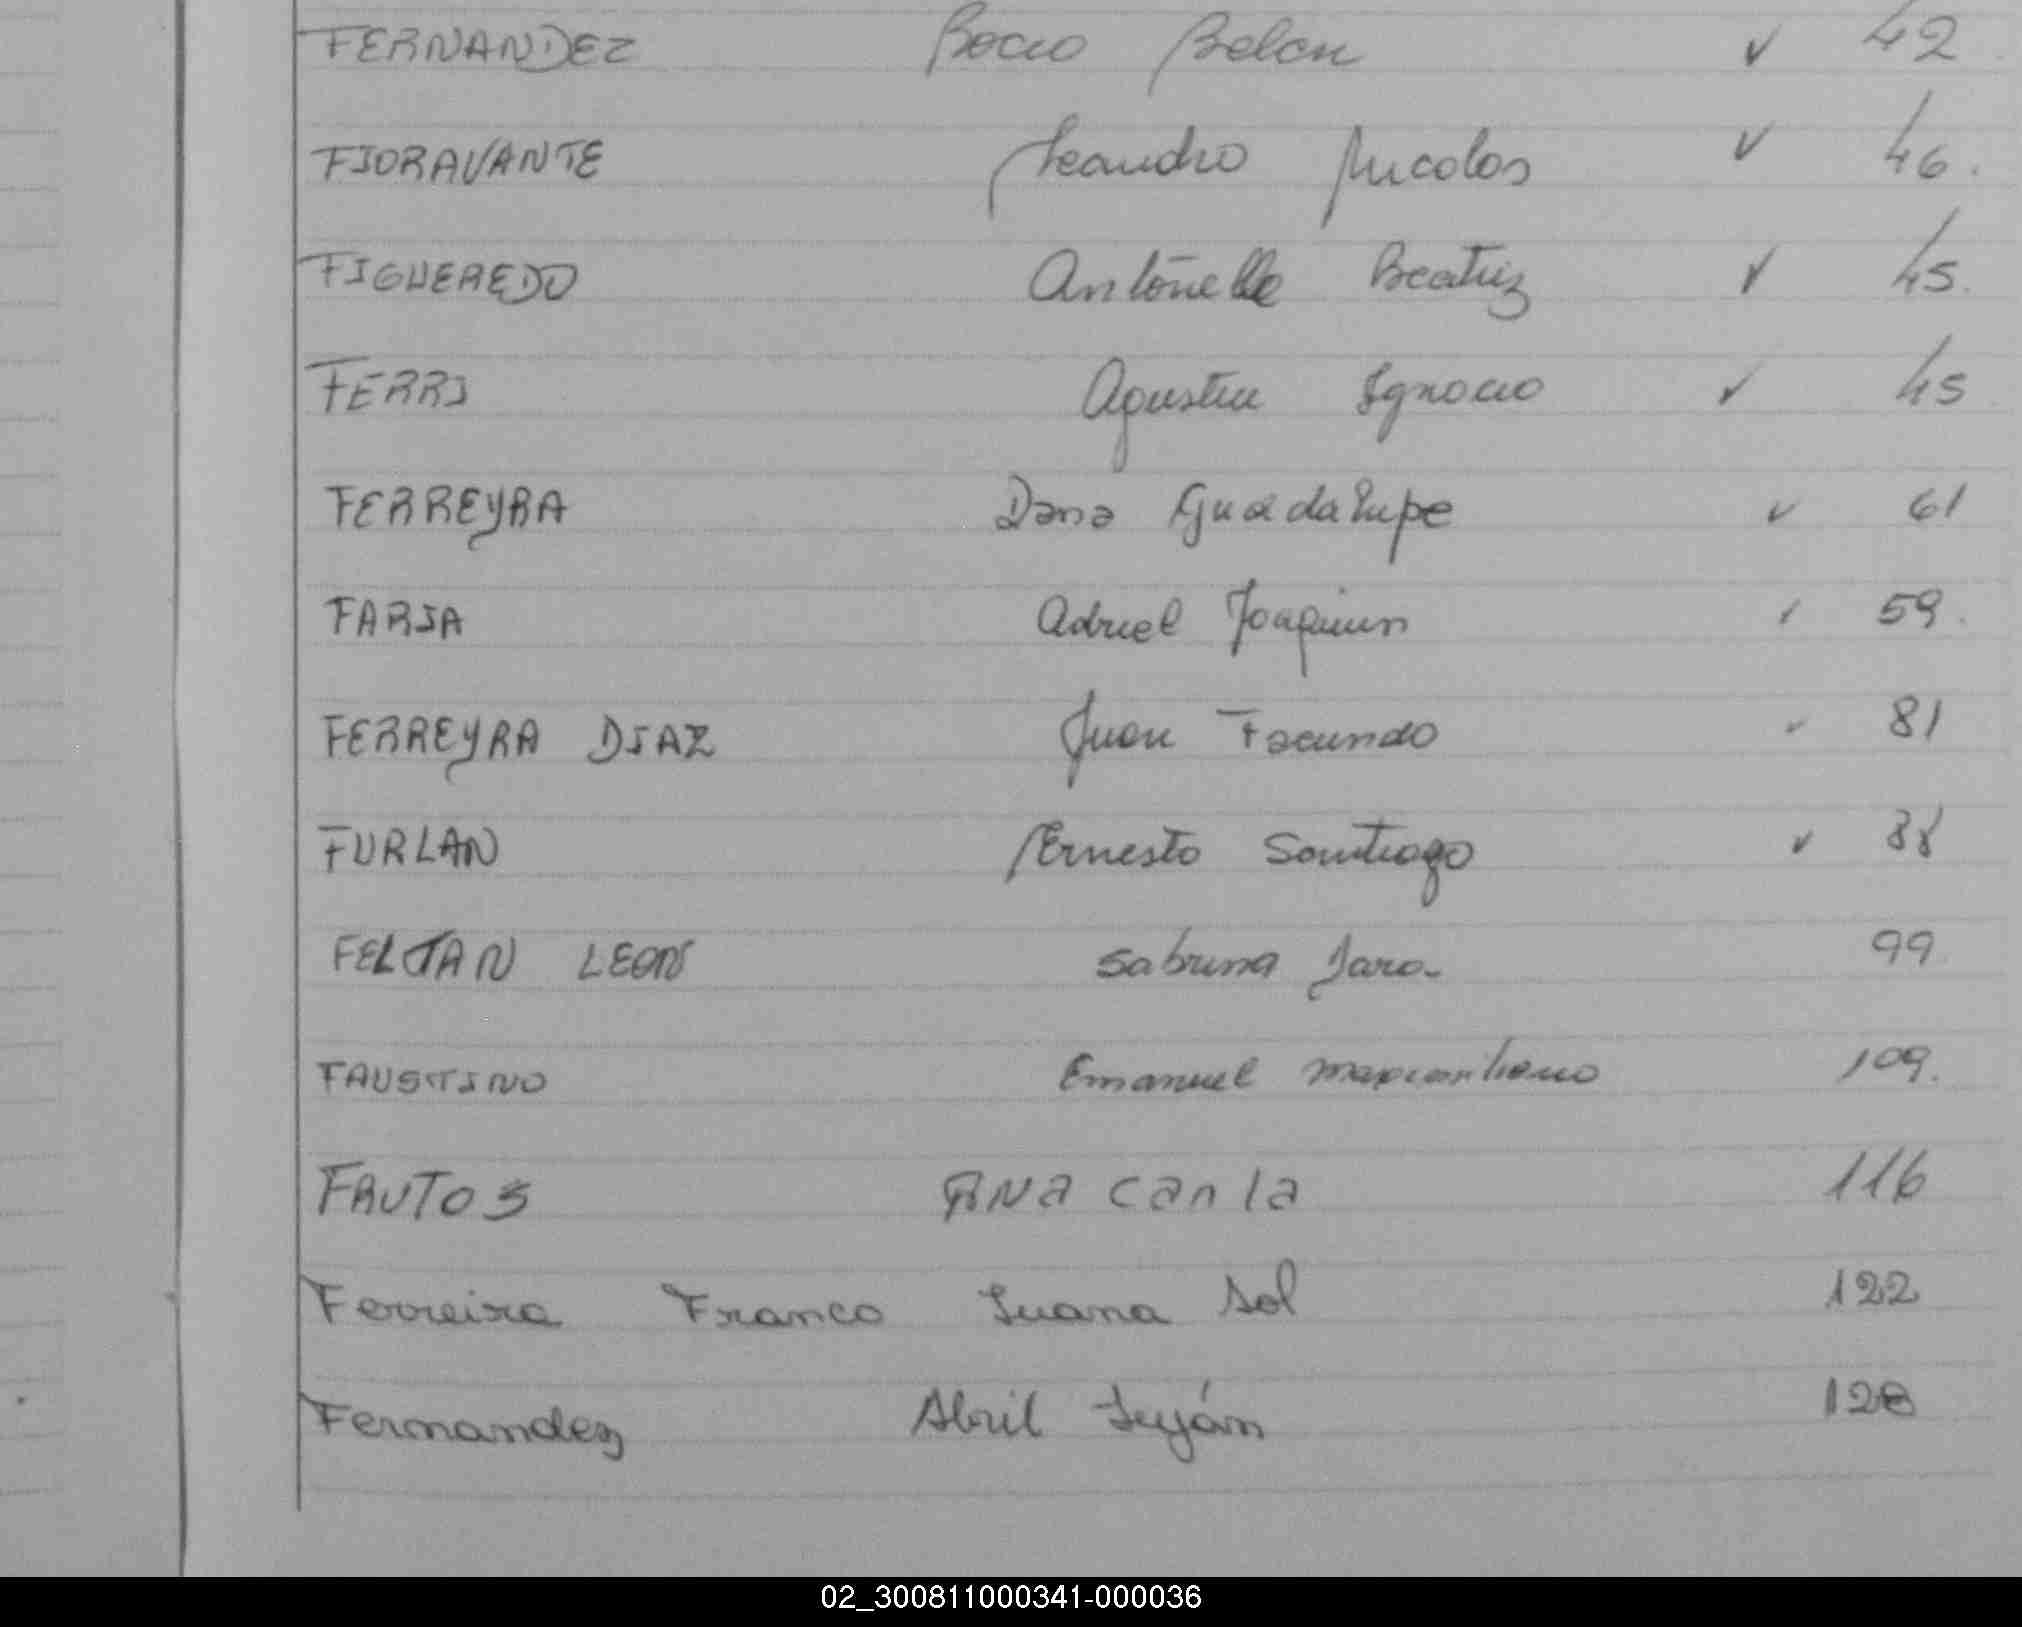 FERNANDEZ Rocio Belen ✓ 42
FIORAVANTE Leandro Nicolas ✓ 46.
FIGUEREDO Antonella Beatriz ✓ 45.
FERRI Agustin Ignacio ✓ 45
FERREYRA Dana Guadalupe ✓ 61
FARIA Adriel Joaquin ✓ 59.
FERREYRA DIAZ Juan Facundo ✓ 81
FURLAN Ernesto Santiago ✓ 88
LEON Sabrina 99
FAUSTINO Emanuel Maximiliano 109.
FRUTOS Ana Carla 116
Ferreira Franco Juana Sol 122
Fernandez Abril Luján 128
02_300811000341-000036